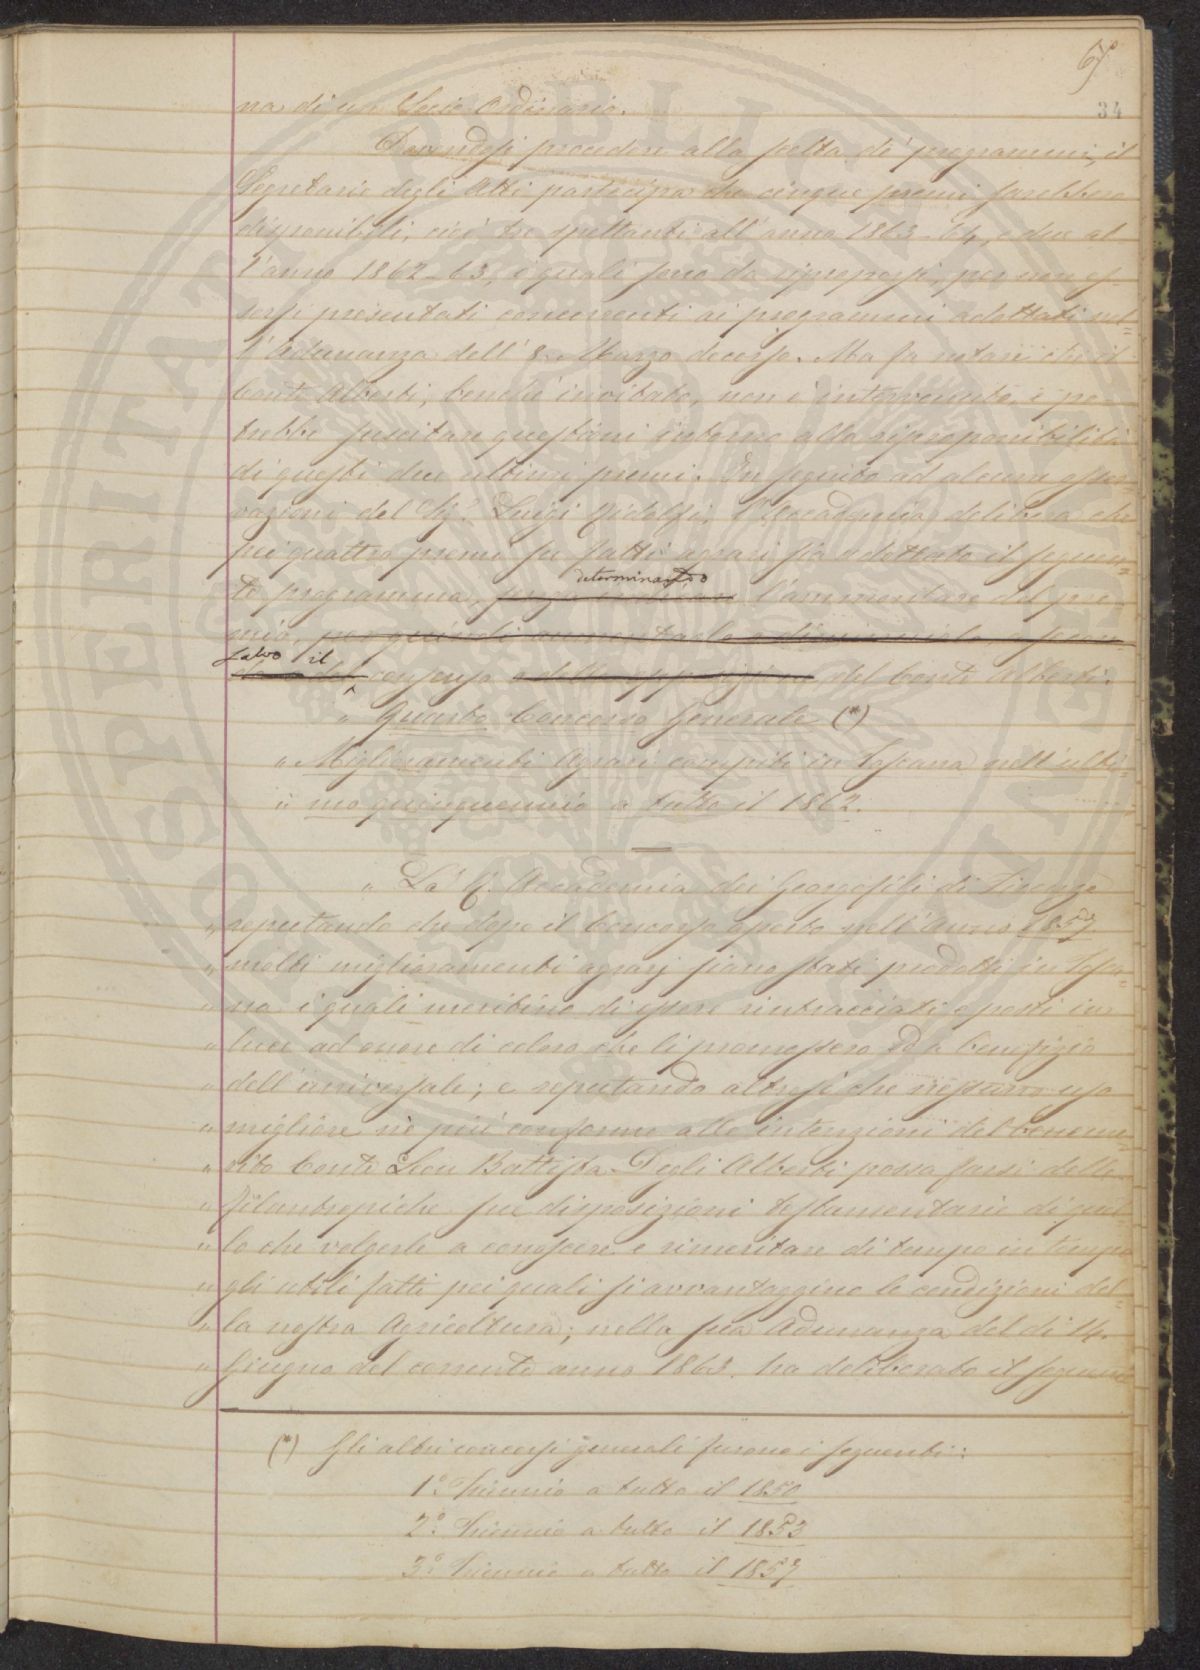 67
34
na di un Socio Ordinario.
Dovendosi procedere alla scelta de' programmi, il
Segretario degli Atti partecipa che cinque premi sarebbero
disponibili, cioè tre spettanti all'anno 1863-64, e due al
l'anno 1862-63, i quali sono da riproporsi, per non es-
sersi presentati concorrenti ai programmi adottati nel=
l'Adunanza dell' 8. Marzo decorso. Ma fa notare che il
Conte Alberti, benchè invitato, non è intervenuto, e po-
trebbe suscitare questioni intorno alla riproponibilità
di questi due ultimi premi. In seguito ad alcune osser-
vazioni del Sig.r Luigi Ridolfi, l'Accademia delibera che
pei quattro premi su fatti agrari sia adottato il seguen=
determinato
te programma, l'ammontare del pre
mio,
salvo il
consenso del Conte Alberti.
" Quarto Concorso Generale (*)
" Miglioramenti Agrari compiti in Toscana nell'ulti=
" mo quinquennio a tutto il 1862.
" La R. Accademia dei Georgofili di Firenze
" reputando che dopo il Concorso aperto nell'Anno 1857
" molti miglioramenti agrarj siano stati prodotti in Tosca=
" na i quali meritino di essere rintracciati e posti in
" luce ad onore di coloro che li promossero ed a benefizio
" dell'universale; e reputando altresì che nessuno uso
" migliore nè più conforme alle intenzioni del beneme=
" rito Conte Leon Battista Degli Alberti possa farsi delle
" filantropiche sue disposizioni testamentarie di quel=
" lo che volgerle a conoscere e rimeritare di tempo in tempo
" gli utili fatti pei quali si avvantaggino le condizioni del=
" la nostra Agricoltura; nella sua Adunanza del dì 14.
" Giugno del corrente anno 1863. ha deliberato il seguente
(*) Gli altri concorsi generali furono i seguenti:
1.° Triennio a tutto il 1850
2.° Triennio a tutto il 1853
3.° Triennio a tutto il 1857
PROSPERITATI PUBLICAE AUGENDAE